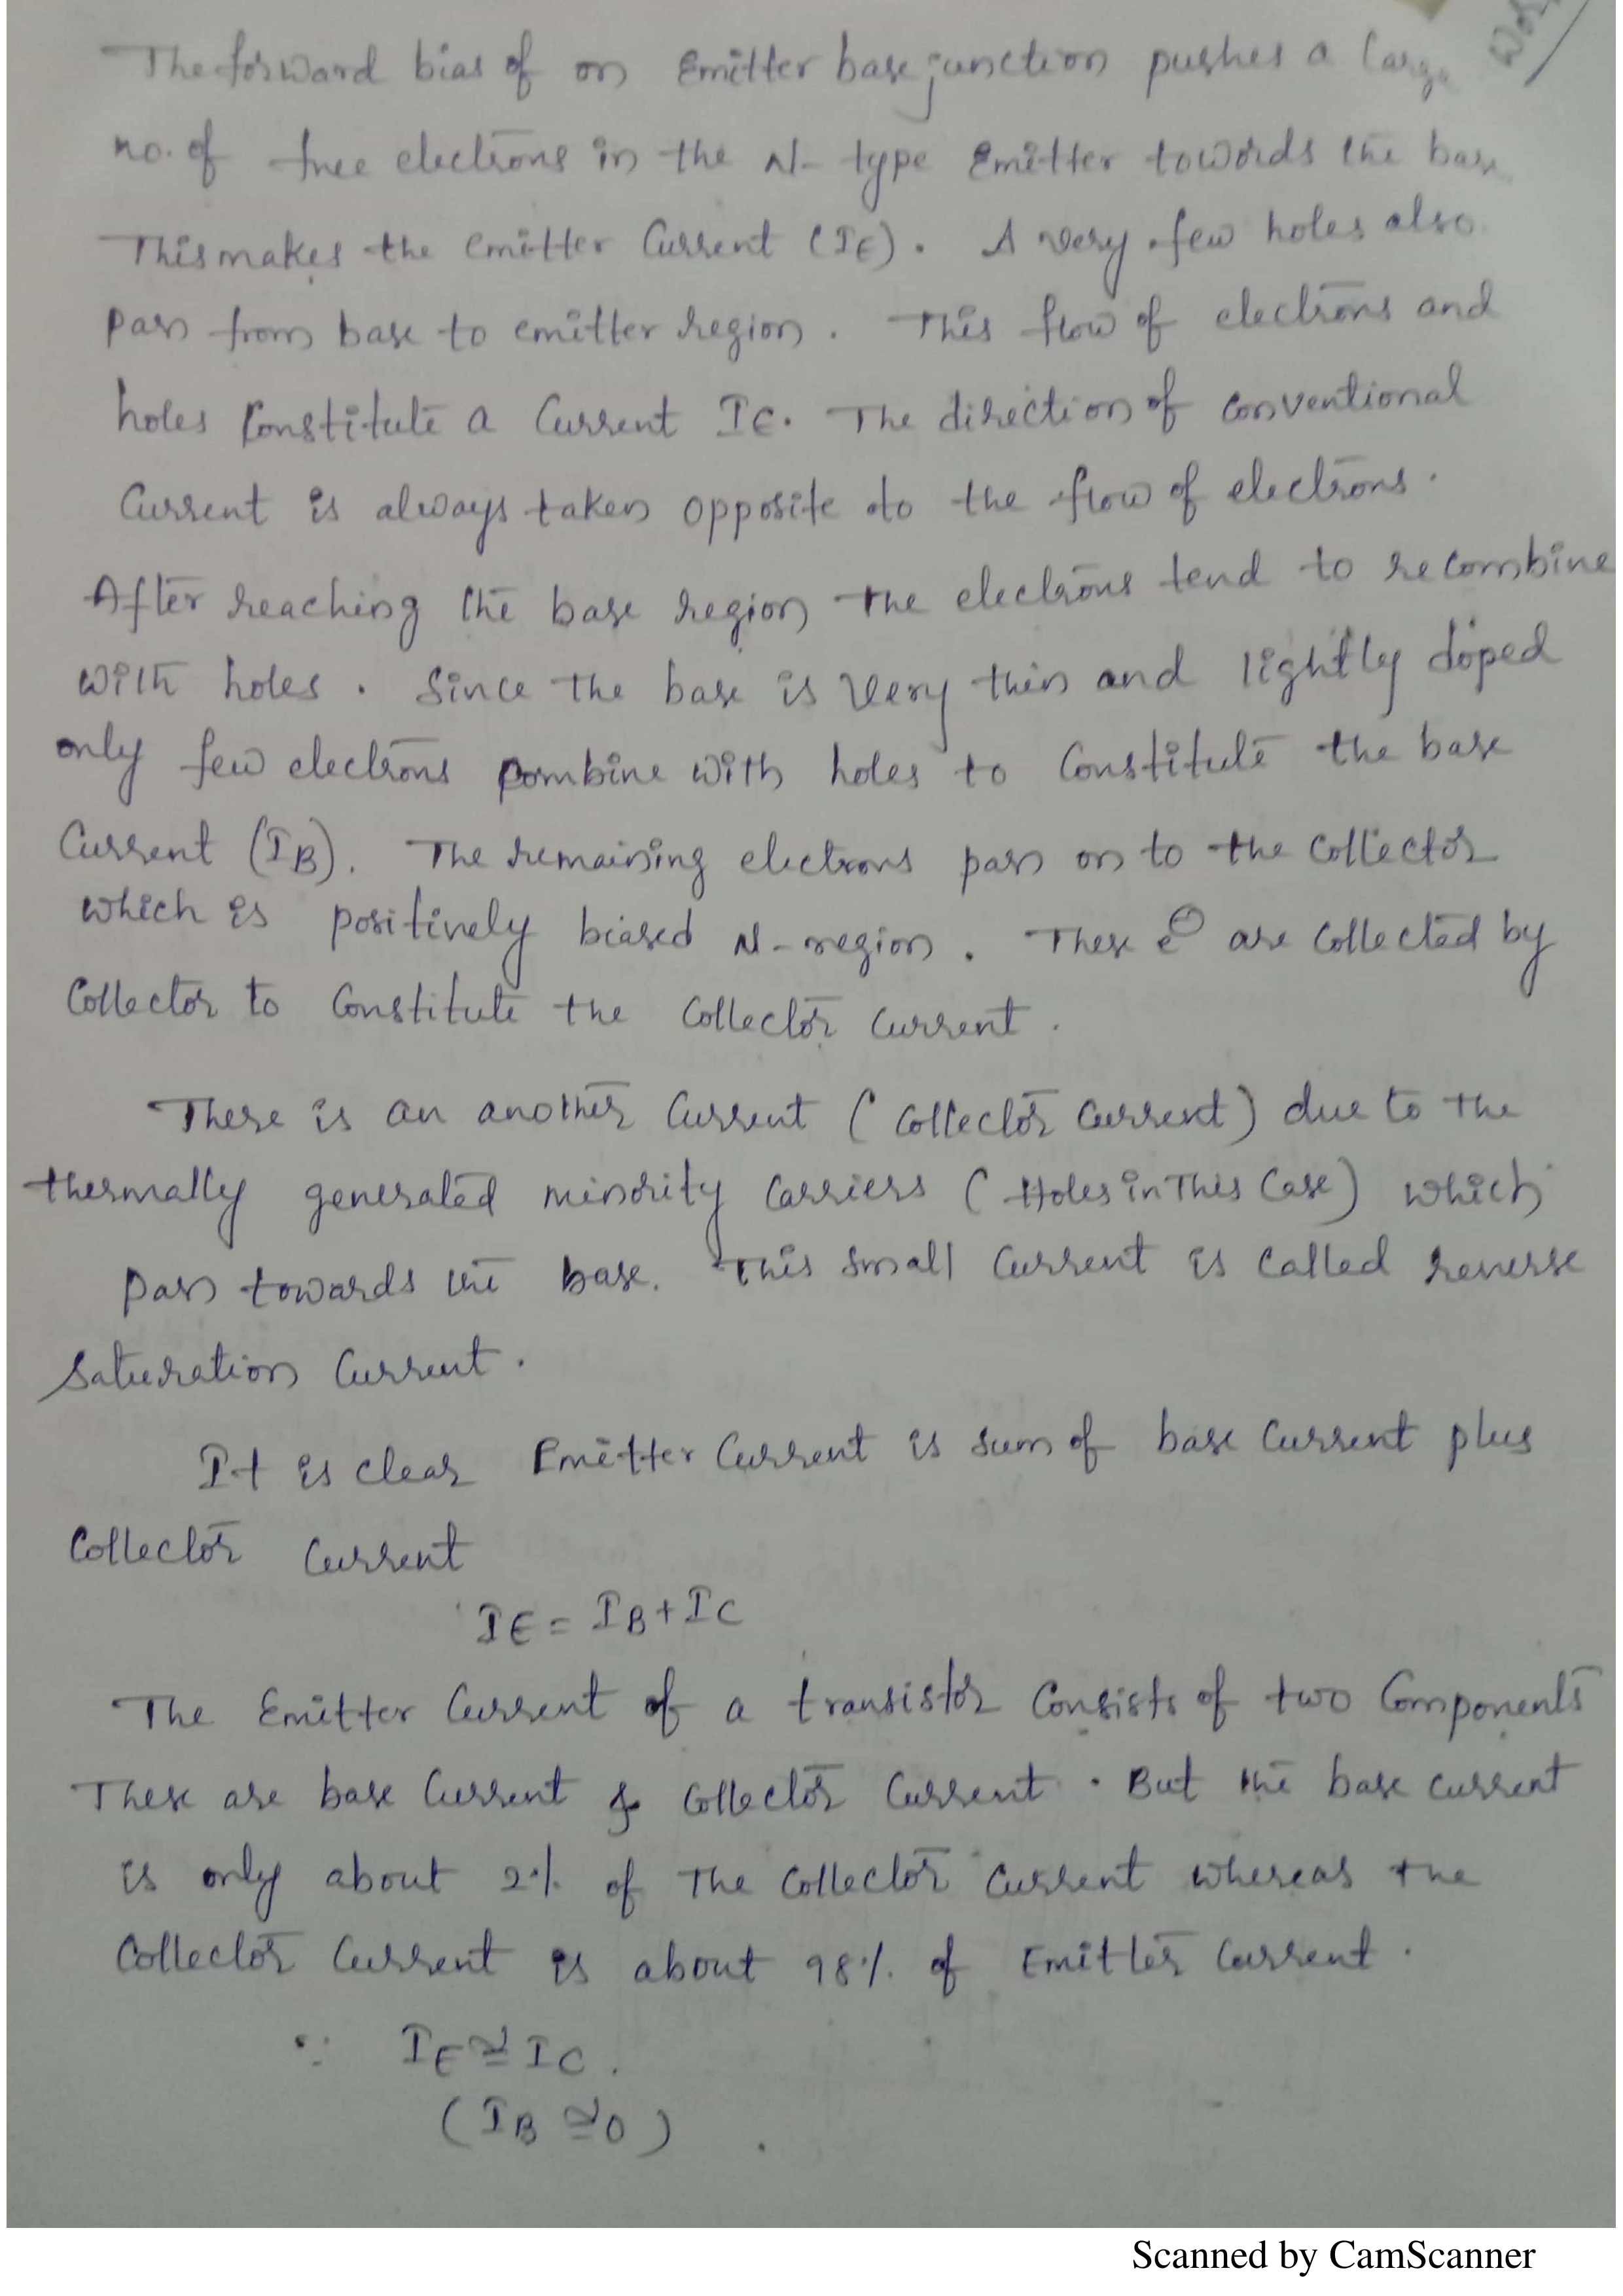 The forward bias of on Emitter base junction pushes a large
no. of free electrons in the N- type Emitter towords the base
This makes the emitter Current (IE). A very few holes also
pass from base to emitter region. This flow of electrons and
holes Constitute a Current IE. The direction of conventional
Current is always taken opposite to the flow of electrons.
After reaching the base region the electrons tend to recombine
with holes. Since the base is very thin and lightly doped
only few electrons combine with holes to Constitute the base
Current (IB). The remaining electrons pass on to the Collector
which is positively biased N-region. These e⊖ are Collected by
Collector to Constitute the Collector Current.
There is an another Current (Collector Current) due to the
thermally generated minority Carriers (Holes in This Case) which
pass towards the base. This small Current is Called reverse
Saturation Current.
It is clear Emitter Current is sum of base Current plus
Collector Current
IE = IB + IC
The Emitter Current of a transistor Consists of two Components
These are base Current & Collector Current. But the base current
is only about 2% of the Collector Current whereas the
Collector Current is about 98% of Emitter Current.
∵ IE ≅ IC.
(IB ≅ 0)
Scanned by CamScanner